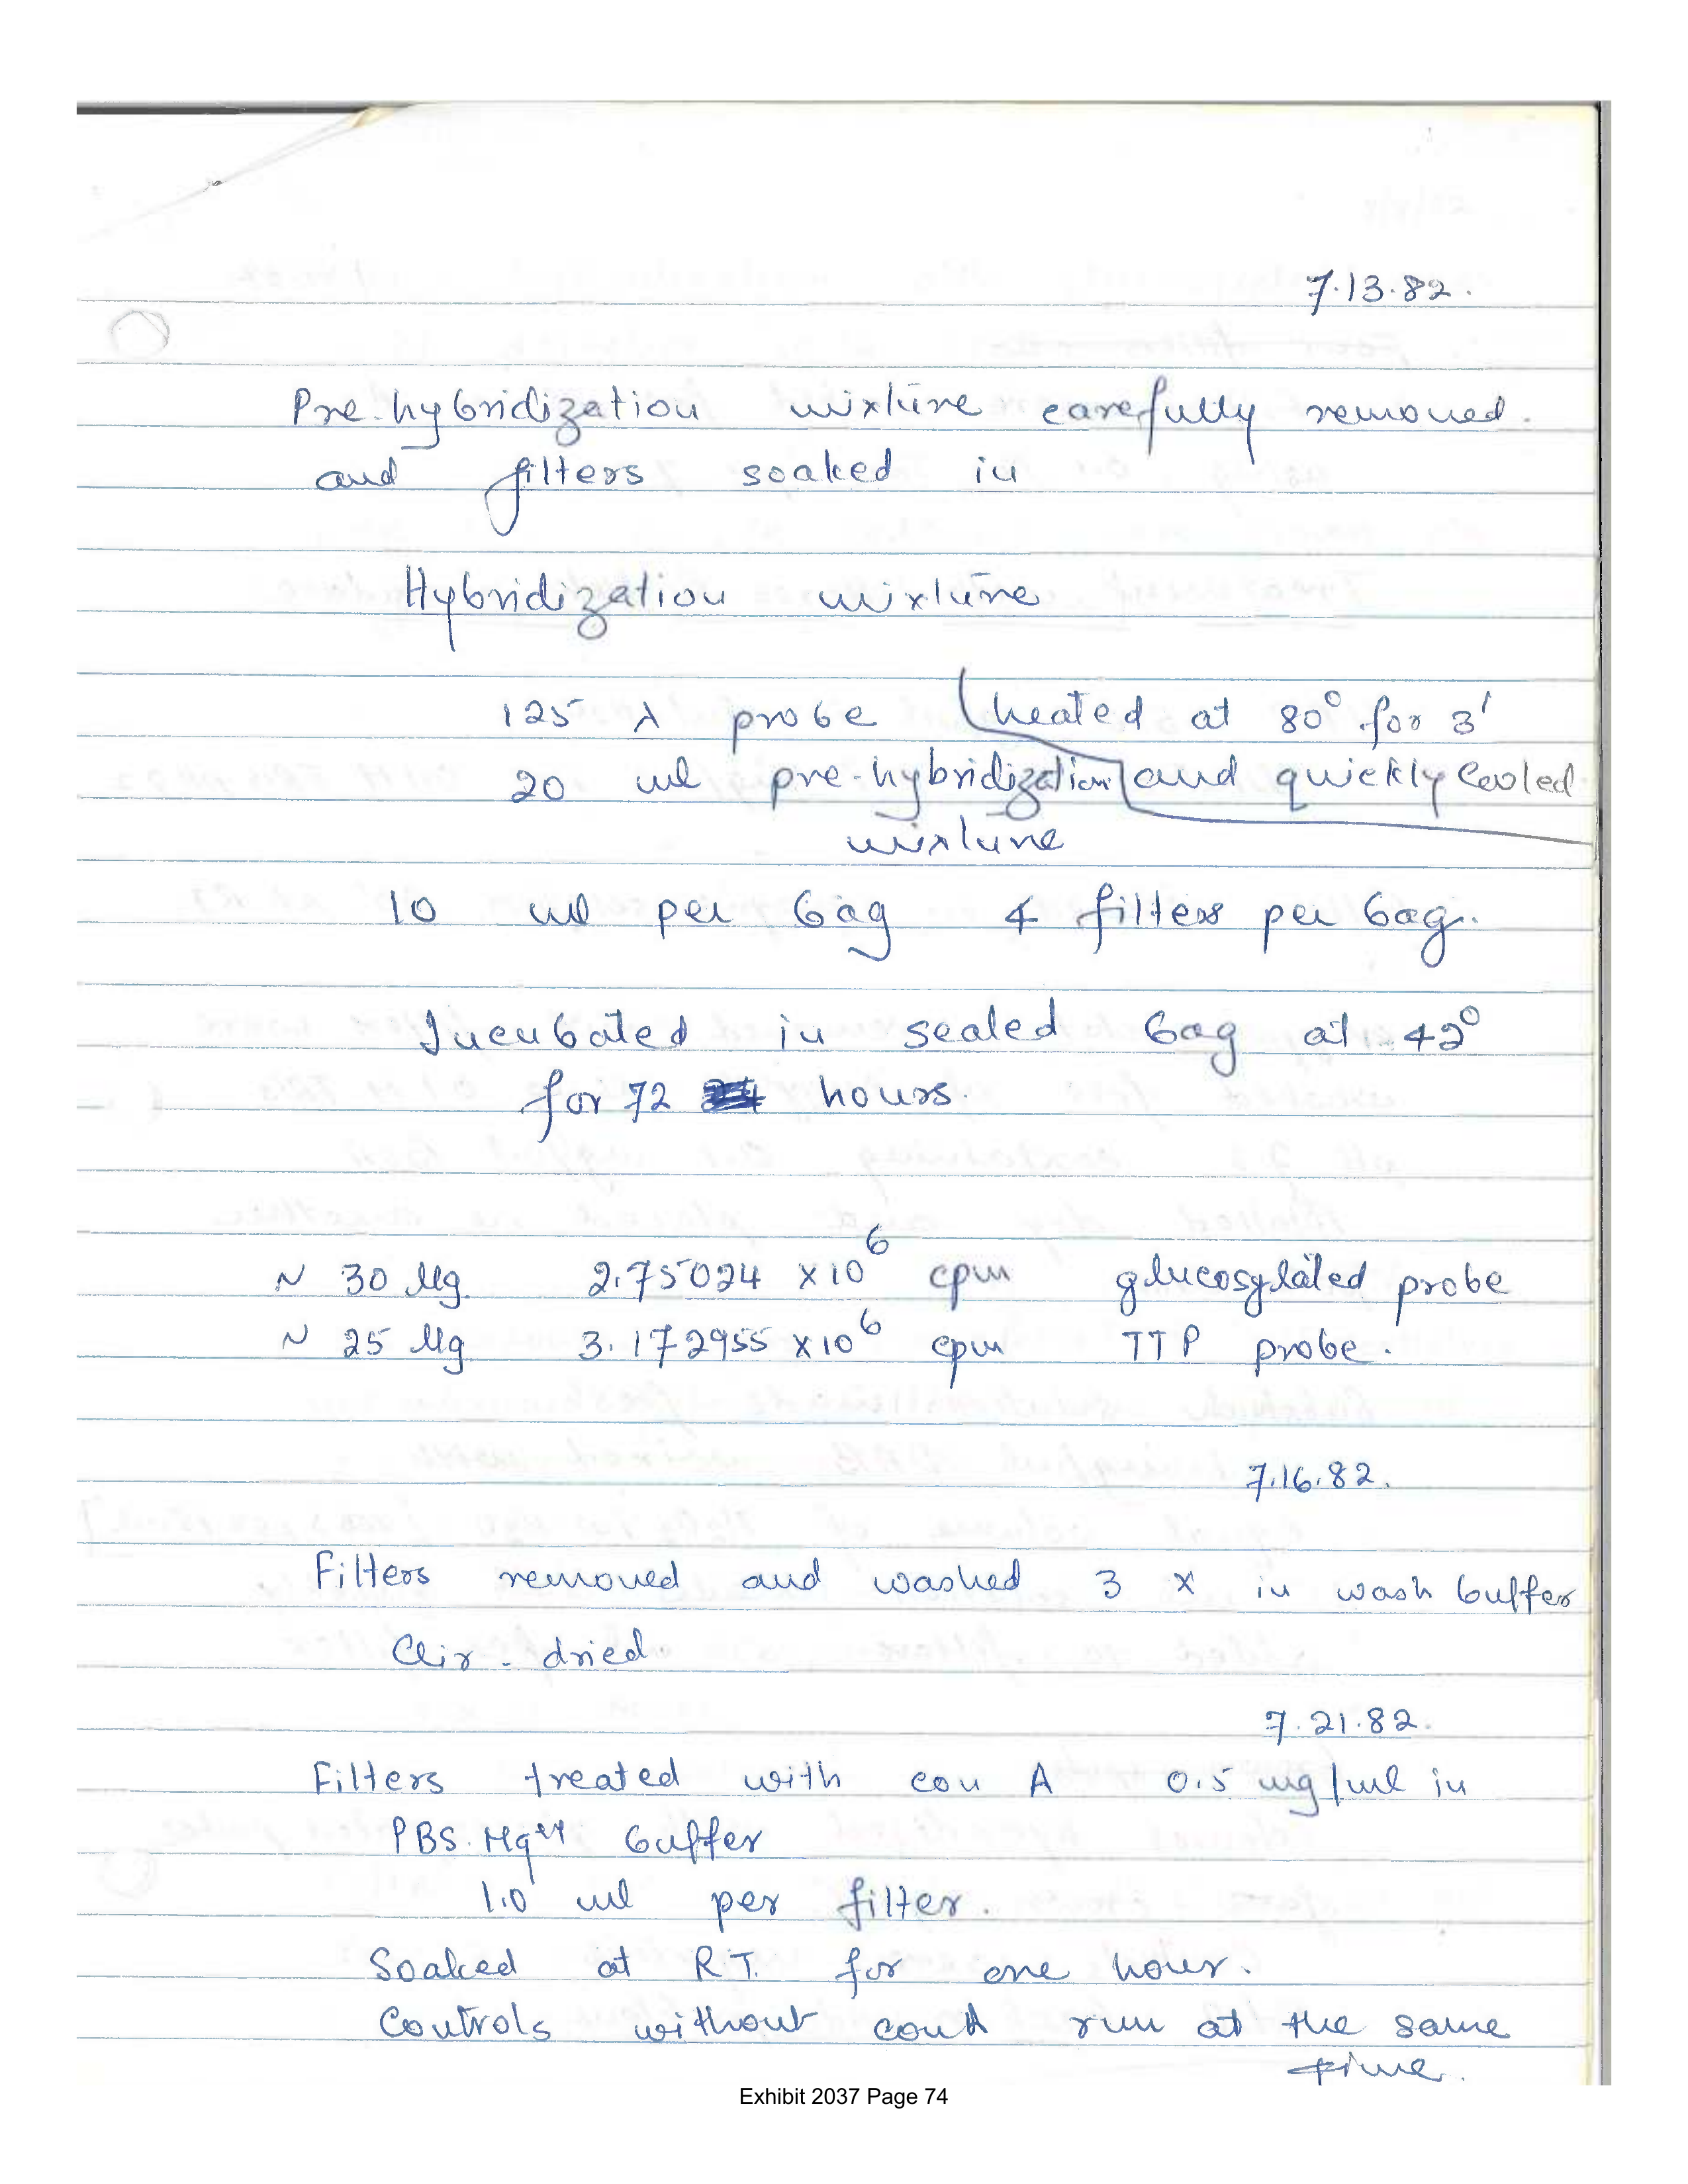 7.13.82.
Pre-hybridization mixture carefully removed.
and filters soaked in
Hybridization mixture
125 λ probe (heated at 80° for 3'
20 ml pre-hybridization and quickly cooled
mixture
10 ml per bag 4 filters per bag.
Incubated in sealed bag at 42°
for 72 hours.
~ 30 µg 2.75024 x 10⁶ cpm glucosylated probe
~ 25 µg 3.172955 x 10⁶ cpm TTP probe.
7.16.82.
Filters removed and washed 3 x in wash buffer
Air-dried.
7.21.82.
Filters treated with con A 0.5 mg/ml in
PBS. Mg⁺⁺ buffer
1.0 ml per filter.
Soaked at R.T. for one hour.
Controls without conA run at the same
time.
Exhibit 2037 Page 74